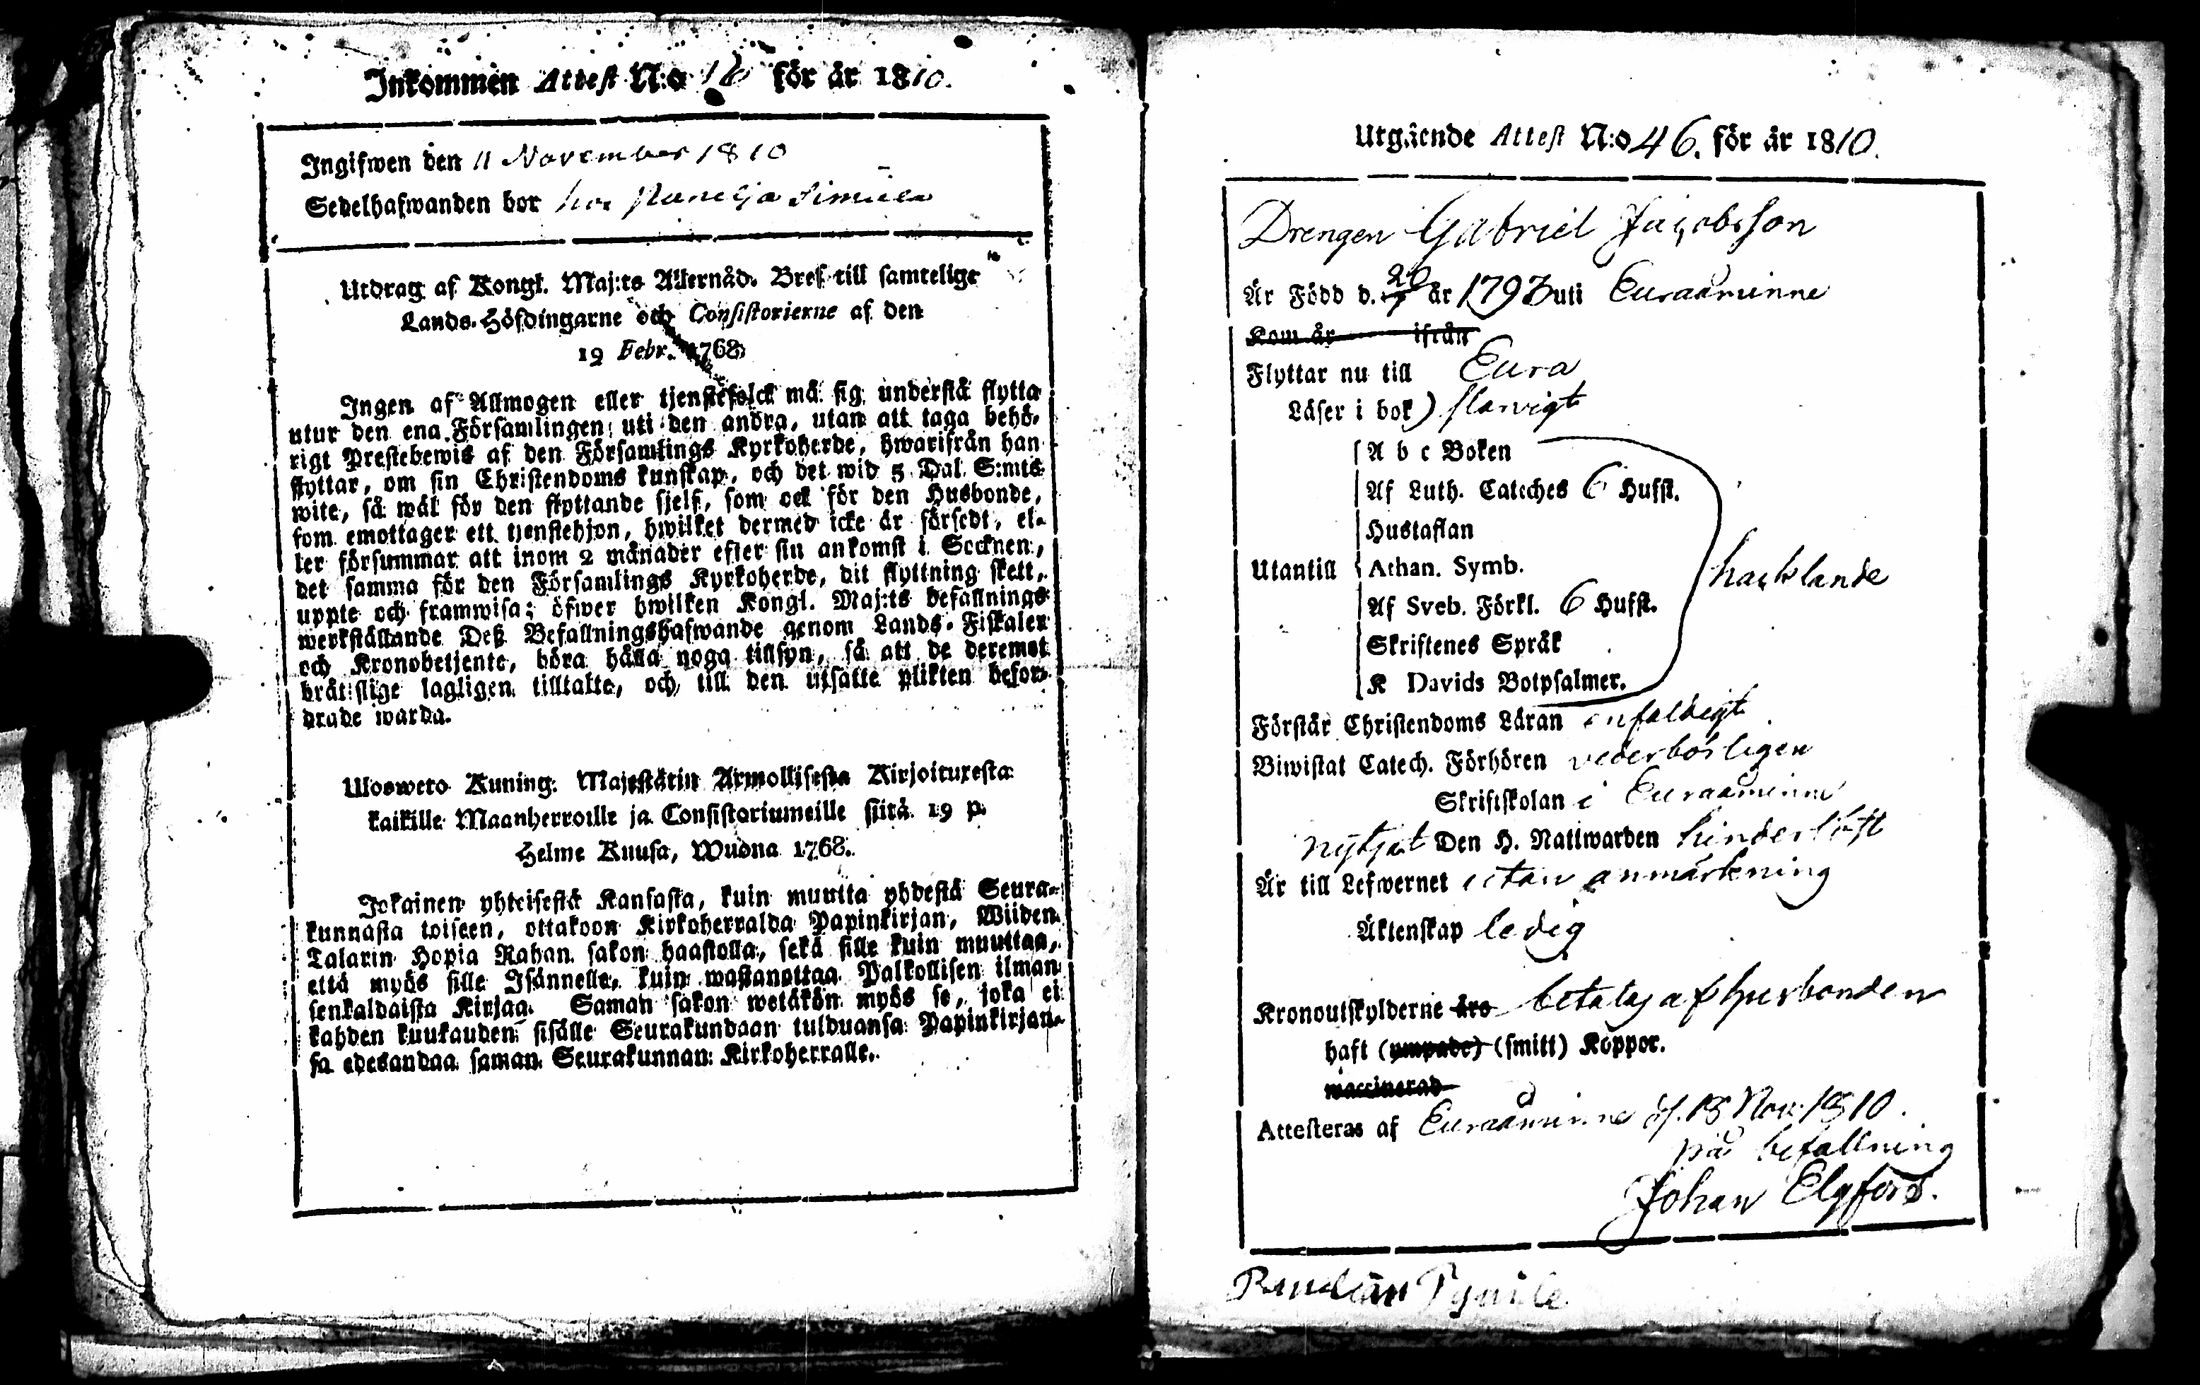 Inkommen Attest N:o 16 för år 1810.
Ingifwen den 11 November 1810
Sedelhafwanden bor hos
Utdrag af Kongl. Maj:ts Allernåd. Bref till samtelige
Lands-Höfdingarne och Consistorierne af den
19 Febr. 1768
Ingen af Allmogen eller tjenstefolck må sig understå flytta
utur den ena Församlingen uti den andra, utan att taga behö-
rigt Prestebewis af den Församlings Kyrkoherde, hwarifrån han
flyttar, om sin Christendoms kunskap, och det wid 5 Dal. S:mts
wite, så wäl för den flyttande sjelf, som ock för den Husbonde,
som emottager ett tjenstehjon, hwilket dermed icke är försedt, el-
ler försummar att inom 2 månader efter sin ankomst i Socknen,
det samma för den Församlings Kyrkoherde, dit flyttning skett,
uppte och framwisa; öfwer hwilken Kongl. Maj:ts befallnings
werkställande Deß Befallningshafwande genom Lands-Fiskaler
och Kronobetjente, böra hålla noga tillsyn, så att de deremot
brätslige lagligen tilltalte, och till den utsatte plikten befor-
drade warda.
Uloswero Kuning. Majestätin Armollisesta Kirjoituxesta
kaikille Maanherroille ja Consistoriumeille siitä 19 p.
Helme Kuusa, Wudna 1768.
Jokainen yhteisestä Kansasta, kuin muutta yhdestä Seura-
kunnasta toiseen, ottakoon Kirkoherralda Papinkirjan, Wiiden
Talarin Hopia Rahan sakon haastolla, sekä sille kuin muuttaa,
että myös sille Isännelle, kuin wastanottaa Palkollisen ilman
senkaldaista Kirjaa. Saman sakon wetäkön myös se, joka ei
kahden kuukauden sisälle Seurakundaan tulduansa Papinkirjan-
sa edesandaa saman Seurakunnan Kirkoherralle.
Utgående Attest N:o 46. för år 1810.
Drengen Gabriel Jacobsson
Är Född d. 20/7 år 1793 uti Euraåminne
Kom år ifrån
Flyttar nu till Eura
Läser i bok) slarvigt
A b c Boken
Af Luth. Cateches 6 Hufst.
Hustaflan
Utantill Athan. Symb. hacklande
Af Sveb. Förkl. 6 Hufst.
Skriftenes Språk
K Davids Botpsalmer.
Förstår Christendoms Läran enfaldigt
Biwistat Catech. Förhören vederbörligen
Skriftskolan i Euraåminne
nytjat Den H. Nattwarden
Är till Lefwernet utan anmärkning
Äktenskap ledig
Kronoutskylderne äro betalas af husbonden
haft (ympade) (smitt) Koppor.
waccinerad
Attesteras af Euraåminne d. 18 Nov. 1810.
på befallning
Johan Elgfors.